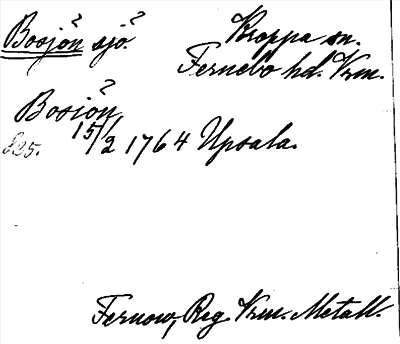 Bosjön? sjö.?
Kroppa sn.
Fernebo hd. Vrm.
Bosjön?
15/2 1764 Upsala.
825.
Fernow, Reg. Vrm. Metall.